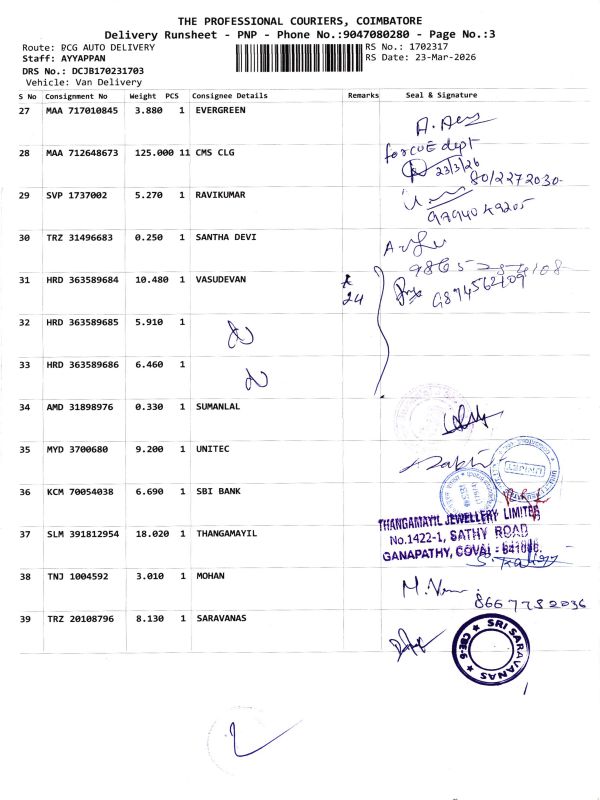 THE PROFESSIONAL COURIERS, COIMBATORE
Delivery Runsheet - PNP - Phone No.:9047080280 - Page No.:3
Route: PCG AUTO DELIVERY
RS No.: 1702317
Staff: AYYAPPAN
RS Date: 23-Mar-2026
DRS No.: DCJB170231703
Vehicle: Van Delivery
S No Consignment No Weight PCS Consignee Details Remarks Seal & Signature
27 MAA 717010845 3.880 1 EVERGREEN
28 MAA 712648673 125.000 11 CMS CLG
for CUE dept
23/3/26
80/2272030-
29 SVP 1737002 5.270 1 RAVIKUMAR
30 TRZ 31496683 0.250 1 SANTHA DEVI
31 HRD 363589684 10.480 1 VASUDEVAN
24
9874562109
32 HRD 363589685 5.910 1
33 HRD 363589686 6.460 1
34 AMD 31898976 0.330 1 SUMANLAL
35 MYD 3700680 9.200 1 UNITEC
36 KCM 70054038 6.690 1 SBI BANK
THANGAMAYIL JEWELLERY LIMITED
37 SLM 391812954 18.020 1 THANGAMAYIL
No.1422-1, SATHY ROAD
GANAPATHY, COVAI - 641006.
38 TNJ 1004592 3.010 1 MOHAN
8667752036
39 TRZ 20108796 8.130 1 SARAVANAS
SRI SARAVANAS
CBE-6